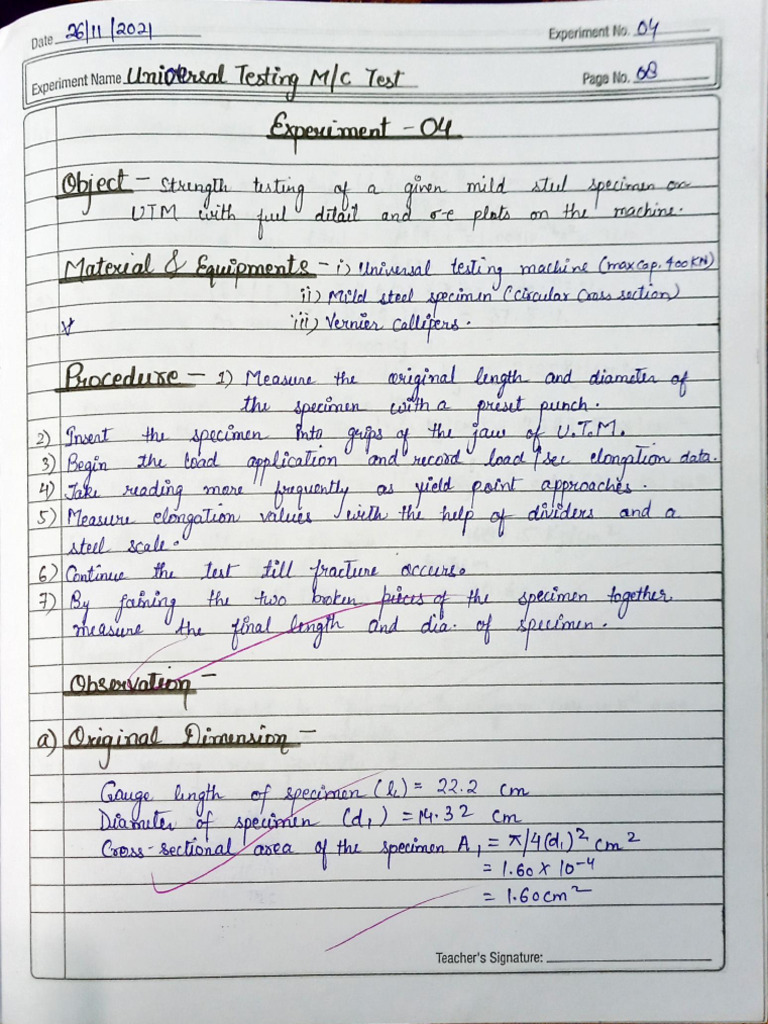 Date 26/11/2021 Experiment No. 04
Experiment Name Universal Testing M/C Test Page No. 08
Experiment - 04
Object - Strength testing of a given mild steel specimen on
UTM with full ditail and σ-e plots on the machine.
Material & Equipments - i) Universal testing machine (max cap. 400KN)
ii) Mild steel specimen (circular cross section)
iii) Vernier Callipers.
Procedure - 1) Measure the original length and diameter of
the specimen with a preset punch.
2) Insert the specimen into grips of the jaw of U.T.M.
3) Begin the load application and record load/sec elongation data.
4) Take reading more frequently as yield point approaches.
5) Measure elongation values with the help of dividers and a
steel scale.
6) Continue the test till fracture occurs.
7) By joining the two broken pieces of the specimen together
measure the final length and dia. of specimen.
Observation -
a) Original Dimension -
Gauge length of specimen (l₁) = 22.2 cm
Diameter of specimen (d₁) = 14.32 cm
Cross-sectional area of the specimen A₁ = π/4(d₁)² cm²
= 1.60 x 10⁻⁴
= 1.60 cm²
Teacher's Signature: